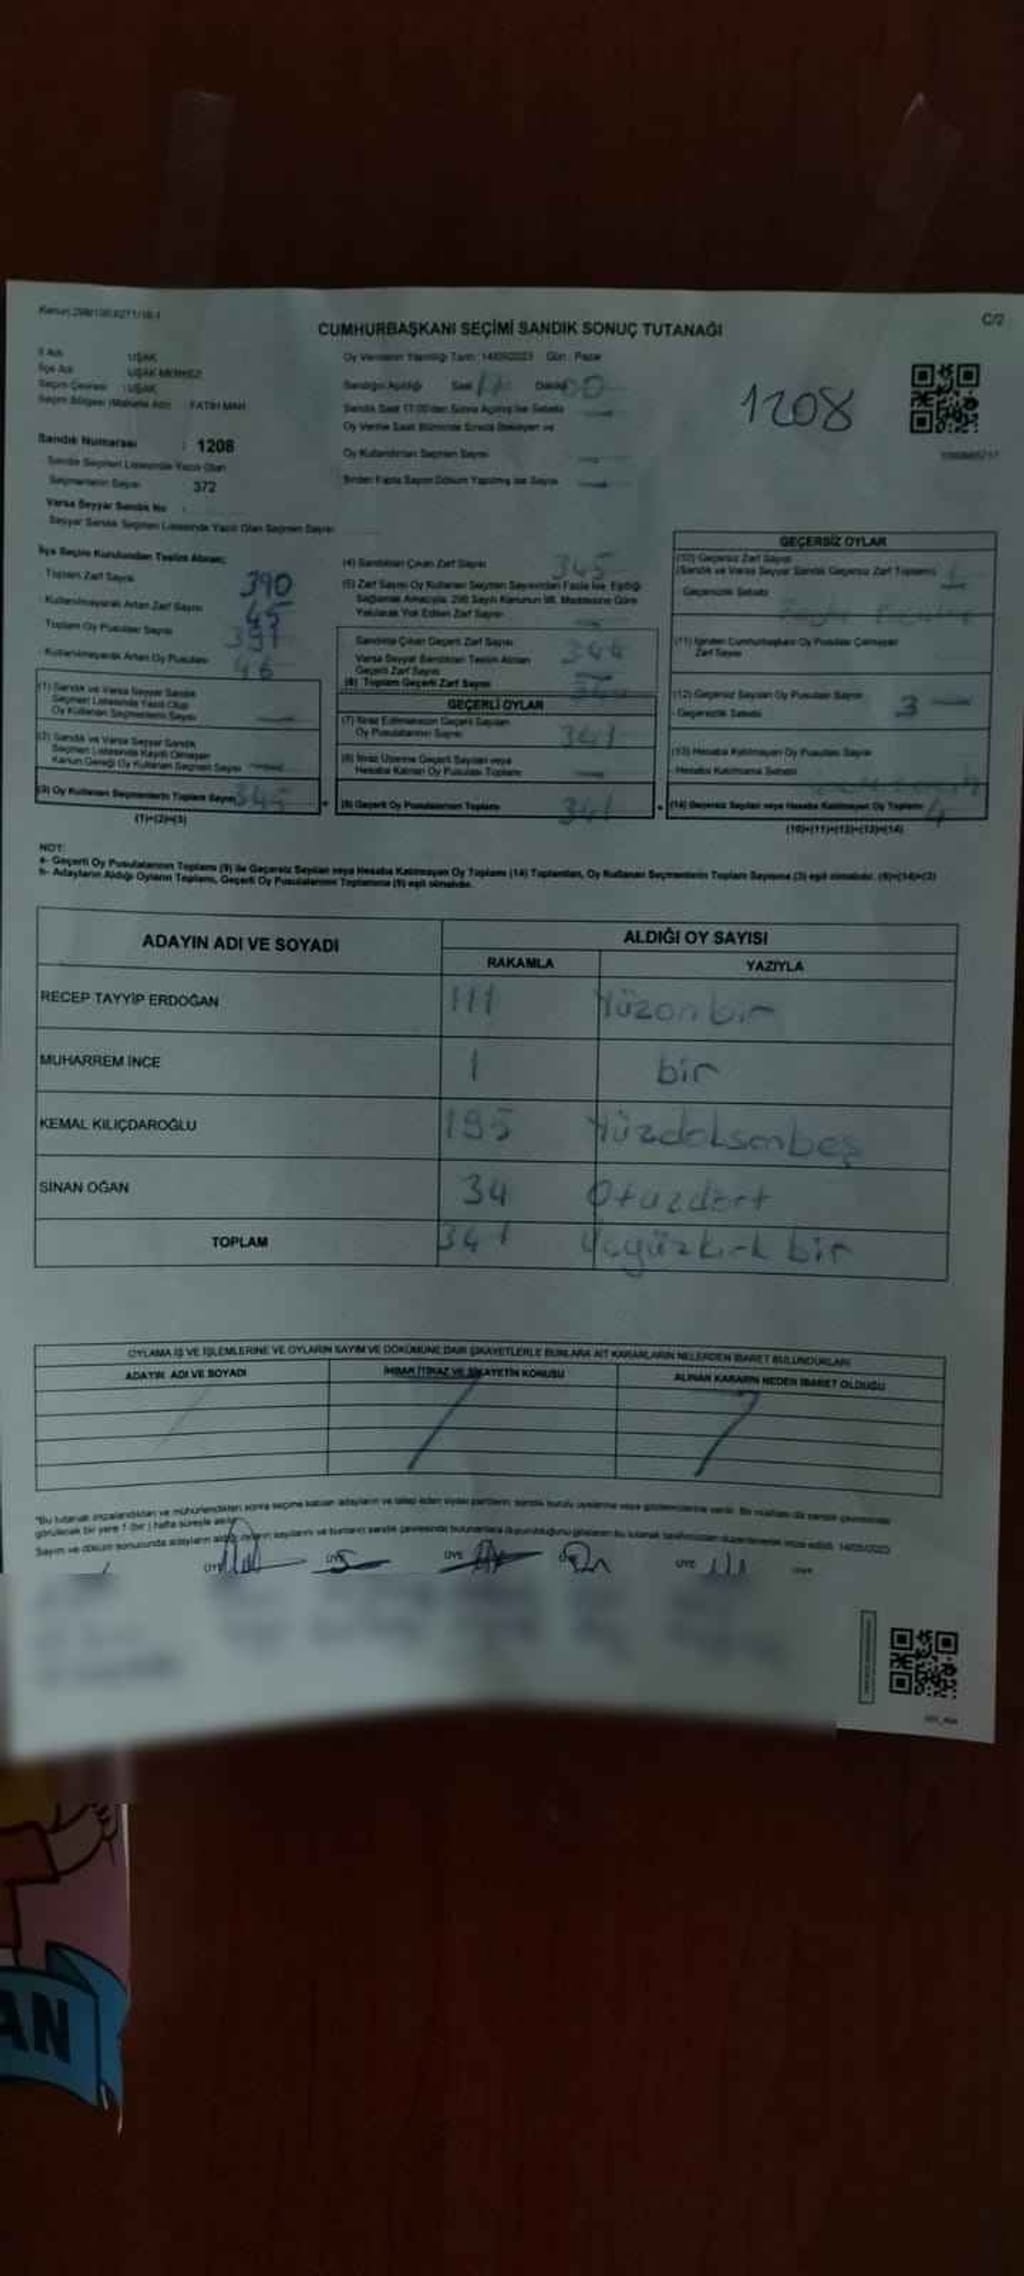 CUMHURBAŞKANI SEÇİMİ SANDIK SONUÇ TUTANAĞI
C/2
İl Adı UŞAK
İlçe Adı UŞAK MERKEZ
Seçim Çevresi : UŞAK
Seçim Bölgesi (Mahalle Adı) : FATİH MAH.
Oy Vermenin Yapıldığı Tarih: 14/05/2023 Gün : Pazar
Sandığın Açıldığı Saat 17 Dakika 00
Sandık Saat 17:00'den Sonra Açılmış İse Sebebi
Oy Verme Saati Bitiminde Sırada Bekleyen ve
Oy Kullandırılan Seçmen Sayısı
Birden Fazla Sayım Döküm Yapılmış İse Sayısı
1208
Sandık Numarası : 1208
Sandık Seçmen Listesinde Yazılı Olan
Seçmenlerin Sayısı 372
Varsa Seyyar Sandık No :
Seyyar Sandık Seçmen Listesinde Yazılı Olan Seçmen Sayısı
İlçe Seçim Kurulundan Teslim Alınan;
Toplam Zarf Sayısı 390
Kullanılmayarak Artan Zarf Sayısı 45
Toplam Oy Pusulası Sayısı 391
Kullanılmayarak Artan Oy Pusulası 46
(1) Sandık ve Varsa Seyyar Sandık
Seçmen Listesinde Yazılı Olup
Oy Kullanan Seçmenlerin Sayısı
(2) Sandık ve Varsa Seyyar Sandık
Seçmen Listesinde Kayıtlı Olmayan
Kanun Gereği Oy Kullanan Seçmen Sayısı
(3) Oy Kullanan Seçmenlerin Toplam Sayısı 345
(1)+(2)=(3)
(4) Sandıktan Çıkan Zarf Sayısı 345
(5) Zarf Sayısı Oy Kullanan Seçmen Sayısından Fazla İse, Eşitliği
Sağlamak Amacıyla, 298 Sayılı Kanunun 98. Maddesine Göre
Yakılarak Yok Edilen Zarf Sayısı
Sandıkta Çıkan Geçerli Zarf Sayısı 344
Varsa Seyyar Sandıktan Teslim Alınan
Geçerli Zarf Sayısı
(6) Toplam Geçerli Zarf Sayısı 344
GEÇERLİ OYLAR
(7) İtiraz Edilmeksizin Geçerli Sayılan
Oy Pusulalarının Sayısı 341
(8) İtiraz Üzerine Geçerli Sayılan veya
Hesaba Katılan Oy Pusulası Toplamı
(9) Geçerli Oy Pusulalarının Toplamı 341
GEÇERSİZ OYLAR
(10) Geçersiz Zarf Sayısı
(Sandık ve Varsa Seyyar Sandık Geçersiz Zarf Toplamı) 1
Geçersizlik Sebebi
(11) İçinden Cumhurbaşkanı Oy Pusulası Çıkmayan
Zarf Sayısı
(12) Geçersiz Sayılan Oy Pusulası Sayısı 3
Geçersizlik Sebebi
(13) Hesaba Katılmayan Oy Pusulası Sayısı
Hesaba Katılmama Sebebi
(14) Geçersiz Sayılan veya Hesaba Katılmayan Oy Toplamı 4
(10)+(11)+(12)+(13)=(14)
NOT:
a- Geçerli Oy Pusulalarının Toplamı (9) ile Geçersiz Sayılan veya Hesaba Katılmayan Oy Toplamı (14) Toplamları, Oy Kullanan Seçmenlerin Toplam Sayısına (3) eşit olmalıdır. (9)+(14)=(3)
b- Adayların Aldığı Oyların Toplamı, Geçerli Oy Pusulalarının Toplamına (9) eşit olmalıdır.
ADAYIN ADI VE SOYADI ALDIĞI OY SAYISI
RAKAMLA YAZIYLA
RECEP TAYYİP ERDOĞAN 111 Yüzonbir
MUHARREM İNCE 1 bir
KEMAL KILIÇDAROĞLU 195 Yüzdoksanbeş
SİNAN OĞAN 34 Otuzdört
TOPLAM 341 Üçyüzkırk bir
OYLAMA İŞ VE İŞLEMLERİNE VE OYLARIN SAYIM VE DÖKÜMÜNE DAİR ŞİKAYETLERLE BUNLARA AİT KARARLARIN NELERDEN İBARET BULUNDUKLARI
ADAYIN ADI VE SOYADI İHBAR İTİRAZ VE ŞİKAYETİN KONUSU ALINAN KARARIN NEDEN İBARET OLDUĞU
ÜYE ÜYE ÜYE ÜYE
AN